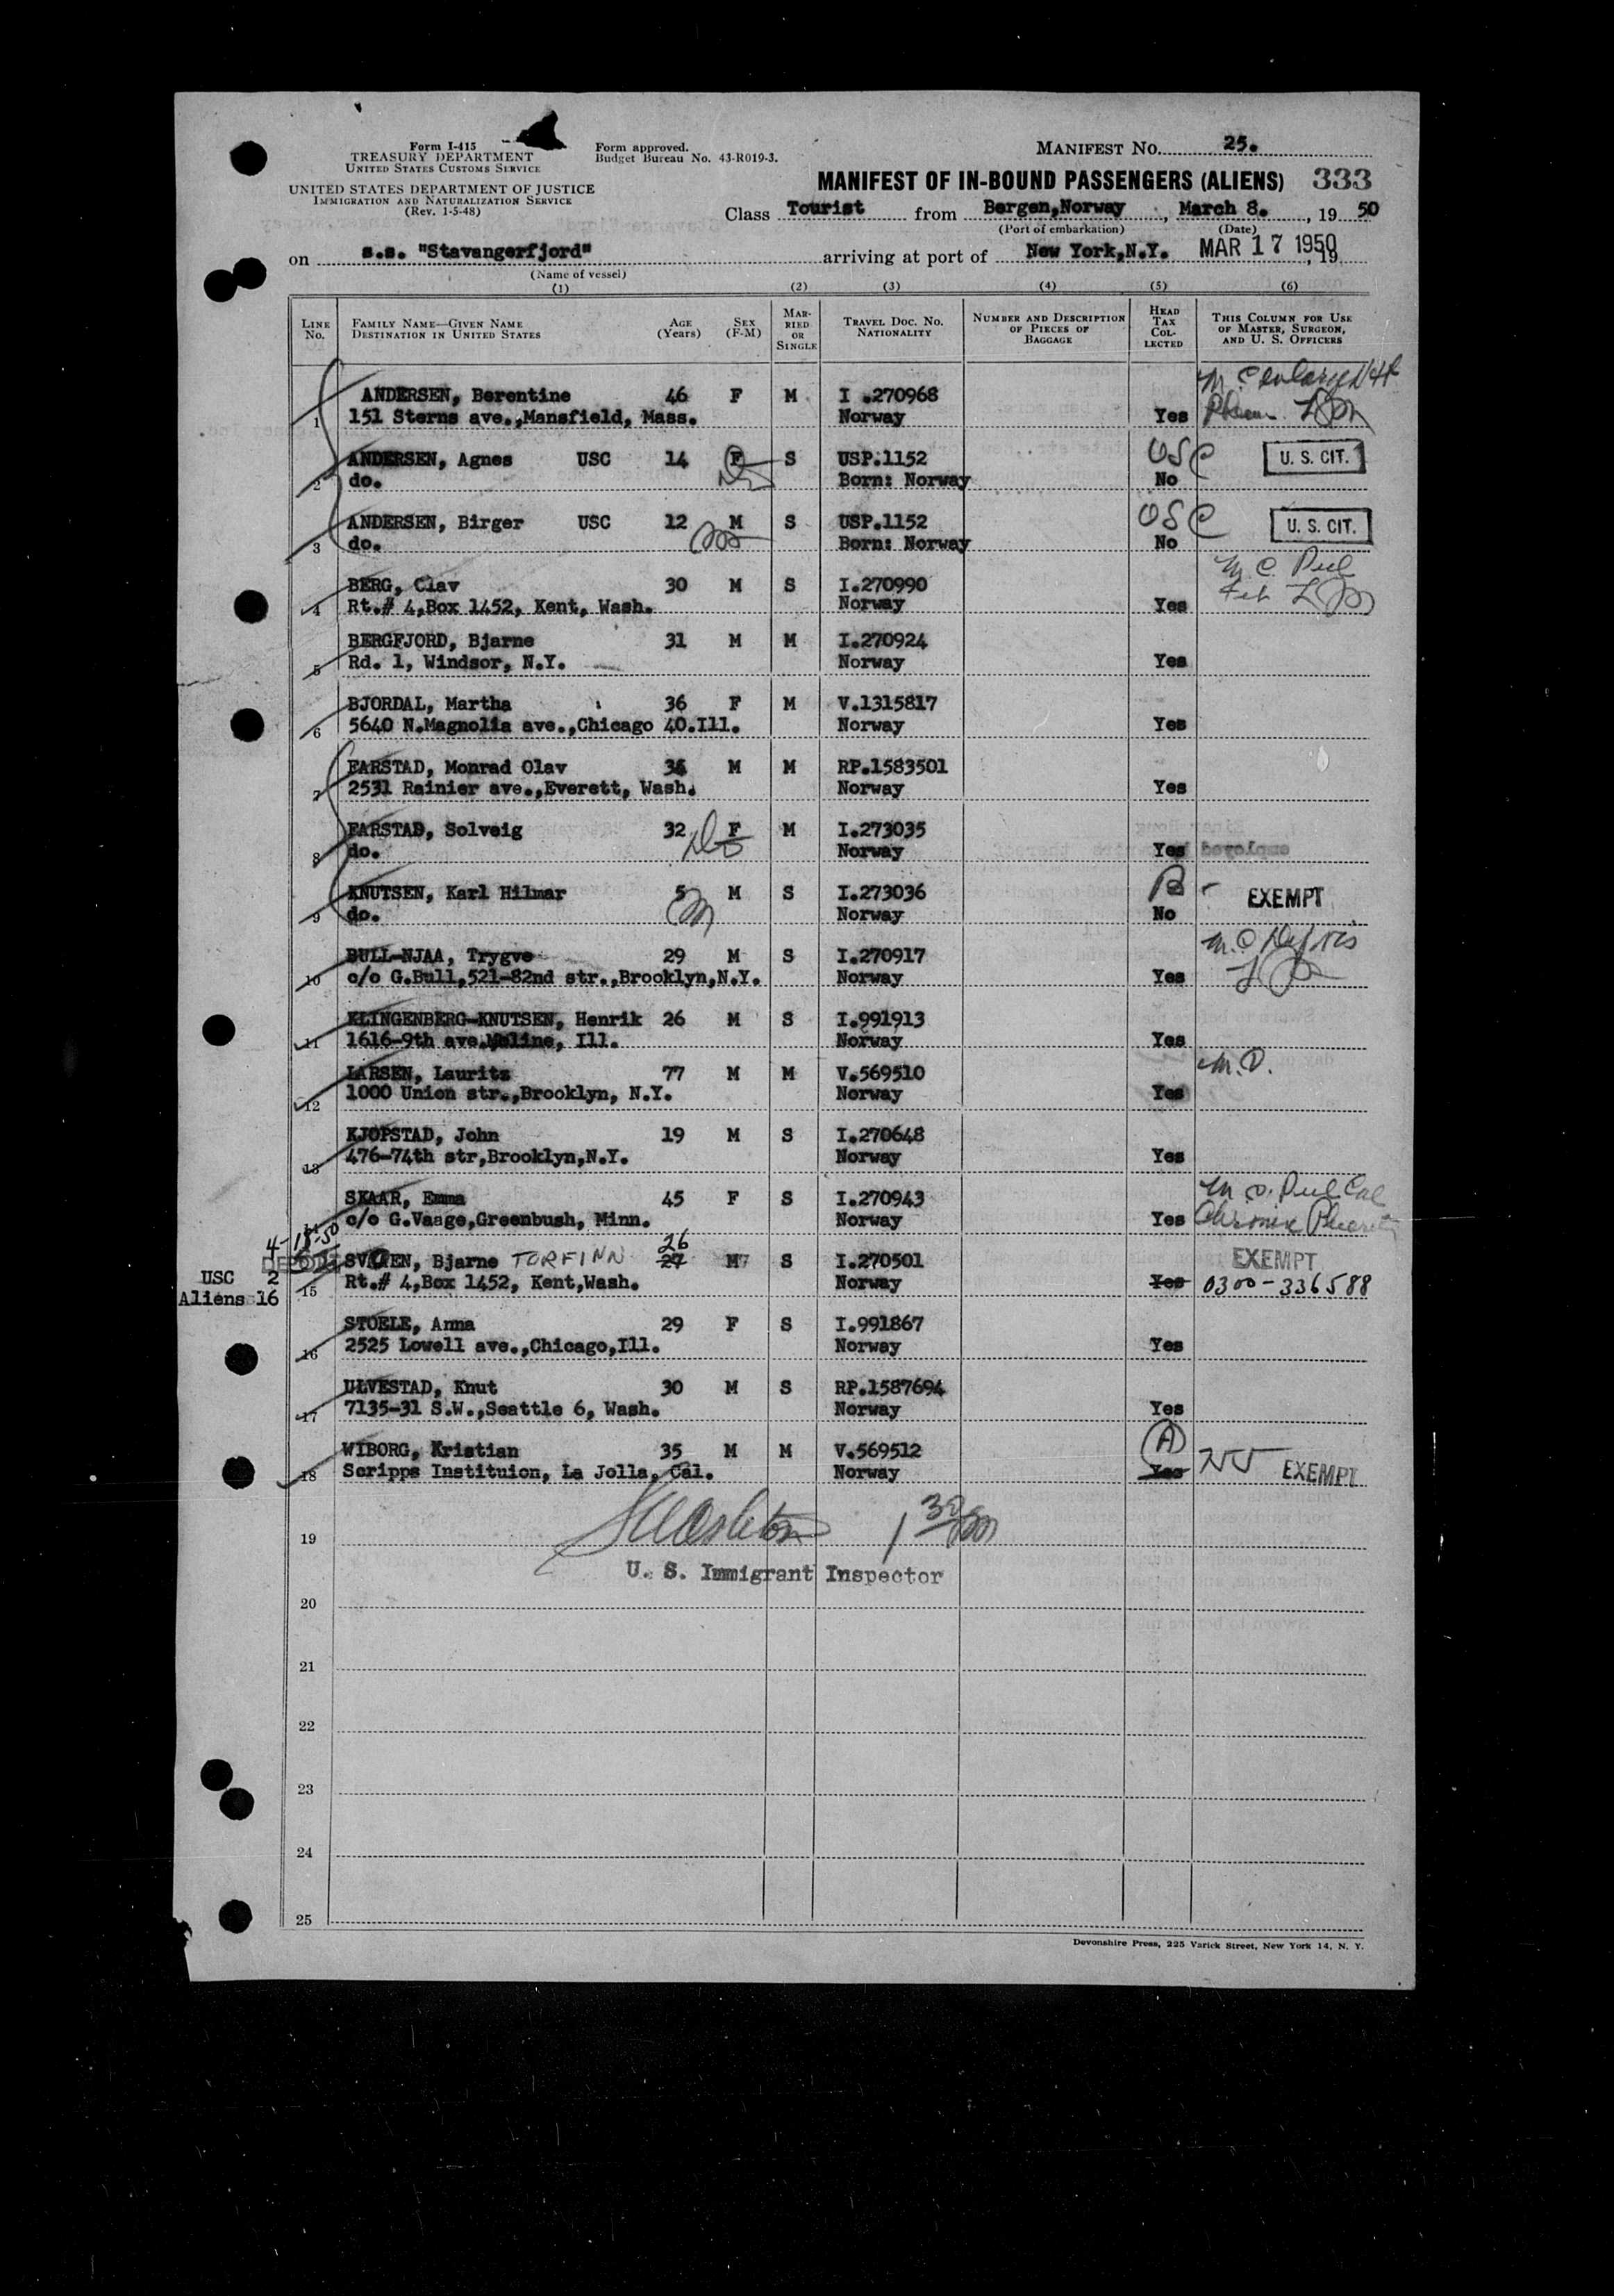 Form I-415
TREASURY DEPARTMENT
UNITED STATES CUSTOMS SERVICE
UNITED STATES DEPARTMENT OF JUSTICE
IMMIGRATION AND NATURALIZATION SERVICE
(Rev. 1-5-48)
Form approved.
Budget Bureau No. 43-R019-3.
MANIFEST No. 25.
MANIFEST OF IN-BOUND PASSENGERS (ALIENS) 333
Class Tourist from Bergen,Norway, March 8., 19 50
(Port of embarkation) (Date)
on s.s. "Stavangerfjord" arriving at port of New York,N.Y. MAR 17 1950, 19
(Name of vessel)
(1) (2) (3) (4) (5) (6)
LINE No. FAMILY NAME—GIVEN NAME DESTINATION IN UNITED STATES AGE (Years) SEX (F-M) MARRIED OR SINGLE TRAVEL DOC. NO. NATIONALITY NUMBER AND DESCRIPTION OF PIECES OF BAGGAGE HEAD TAX COLLECTED THIS COLUMN FOR USE OF MASTER, SURGEON, AND U. S. OFFICERS
ANDERSEN, Berentine 46 F M I .270968
1 151 Sterns ave.,Mansfield, Mass. Norway Yes
ANDERSEN, Agnes USC 14 F S USP.1152 USC U. S. CIT.
2 do. Born: Norway No
ANDERSEN, Birger USC 12 M S USP.1152 USC U. S. CIT.
3 do. Born: Norway No
BERG, Clav 30 M S I.270990
4 Rt.# 4,Box 1452, Kent, Wash. Norway Yes
BERGFJORD, Bjarne 31 M M I.270924
5 Rd. 1, Windsor, N.Y. Norway Yes
BJORDAL, Martha 36 F M V.1315817
6 5640 N.Magnolia ave.,Chicago 40.Ill. Norway Yes
FARSTAD, Monrad Olav 36 M M RP.1583501
7 2531 Rainier ave.,Everett, Wash. Norway Yes
FARSTAD, Solveig 32 F M I.273035
8 do. Norway Yes
KNUTSEN, Karl Hilmar 5 M S I.273036 EXEMPT
9 do. Norway No
BULL-NJAA, Trygve 29 M S I.270917
10 c/o G.Bull,521-82nd str.,Brooklyn,N.Y. Norway Yes
KLINGENBERG-KNUTSEN, Henrik 26 M S I.991913
11 1616-9th ave.,Moline, Ill. Norway Yes
LARSEN, Laurits 77 M M V.569510 M.D.
12 1000 Union str.,Brooklyn, N.Y. Norway Yes
KJOPSTAD, John 19 M S I.270648
13 476-74th str,Brooklyn,N.Y. Norway Yes
SKAAR, Emma 45 F S I.270943
14 c/o G.Vaage,Greenbush, Minn. Norway Yes Chronic
4-18-50
26
Bjarne TORFINN 27 M S I.270501 EXEMPT
USC 2
15 Rt.# 4,Box 1452, Kent,Wash. Norway Yes 0300-336588
Aliens 16
STOELE, Anna 29 F S I.991867
16 2525 Lowell ave.,Chicago,Ill. Norway Yes
ULVESTAD, Knut 30 M S RP.1587694
17 7135-31 S.W.,Seattle 6, Wash. Norway Yes
WIBORG, Kristian 35 M M V.569512 (A)
18 Scripps Instituion, La Jolla, Cal. Norway Yes EXEMPT
19
U. S. Immigrant Inspector
20
21
22
23
24
25
Devonshire Press, 225 Varick Street, New York 14, N. Y.